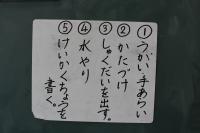 ①うがい手あらい
②かたづけ
③しゅくだいを出す。
④水やり
⑤けいかくちょうを
書く。